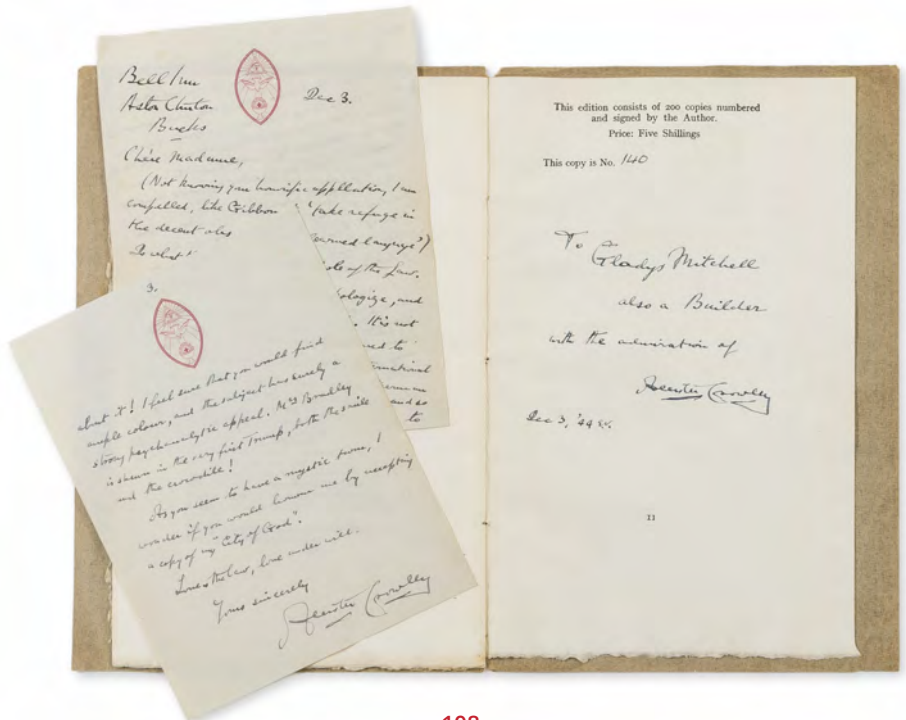 Bell Inn
Aston Clinton
Bucks
Dec 3.
Chère Madame,
(Not knowing your honorific appellation, I am
compelled, like Gibbon "take refuge in
the decent obs learned language")
Do what t hole of the Law.
ologize, and
. It is not
ed to
ernational
and so
to
3.
about it! I feel sure that you would find
ample colour, and the subject has surely a
strong psychoanalytic appeal. Mrs Bradley
is shewn in the very first Trump, both the smile
and the crocodile!
As you seem to have a mystic turn, I
wonder if you would honour me by accepting
a copy of my "City of God".
Love is the law, love under will.
Yours sincerely
Aleister Crowley
This edition consists of 200 copies numbered
and signed by the Author.
Price: Five Shillings
This copy is No. 140
To
Gladys Mitchell
also a Builder
with the admiration of
Aleister Crowley
Dec 3, '44 e.v.
11
108